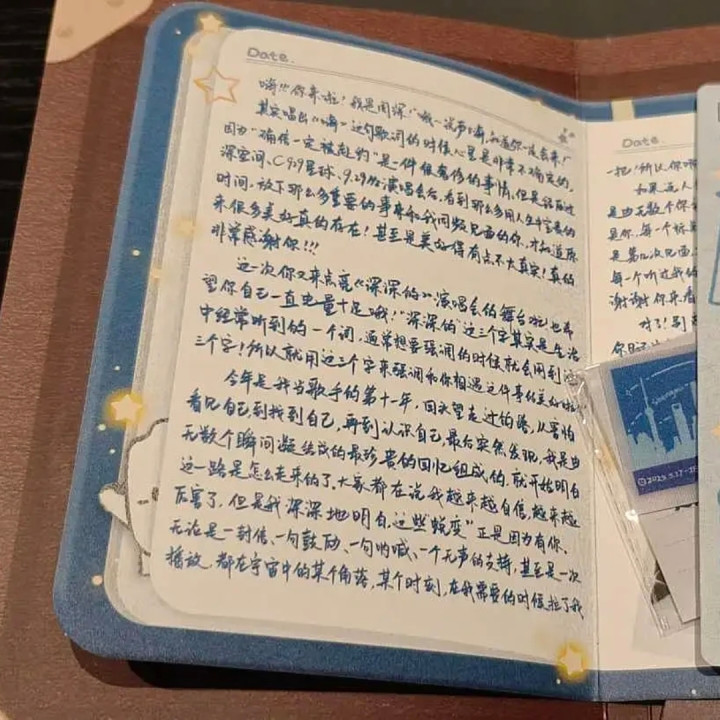 Date.
嗨!!你来啦!我是周深!"哦~说声嗨,知道你一定会来!"
其实唱出"嗨"这句歌词的时候心里是非常不确定的,
因为"确信一定被赴约"是一件很奢侈的事情,但是经历过
深空间、C929星球、9.29Hz演唱会后,看到那么多用人生中宝贵的
时间,放下那么多重要的事来和我同频见面的你,才知道原
来很多美好真的存在!甚至是美好得有点不大真实!真的
非常感谢你!!!
这一次你又来点亮《深深的》演唱会的舞台啦也希
望你自己一直电量十足哦!"深深的"这三个字其实是生活
中经常听到的一个词,通常想要强调的时候就会用到这
三个字!所以就用这三个字来强调和你相遇这件事的美好啦
今年是我当歌手的第十一年,回头望走过的路,从害怕
看见自己,到找到自己,再到认识自己,最后突然发现,我是由
无数个瞬间凝结成的最珍贵的回忆组成的,就开始明白
这一路是怎么走来的了,大家都在说我越来越自信,越来越
厉害了,但是我深深地明白,这些"蜕变"正是因为有你、
无论是一封信、一句鼓励、一句呐喊、一个无声的支持,甚至是一次
播放,都在宇宙中的某个角落,某个时刻,在我需要的时候拉了我
Date.
一把!所以你
如果
是由无数个你
是你,每一个
是第几次见面
每一个听过我的
谢谢你来看
对了!别